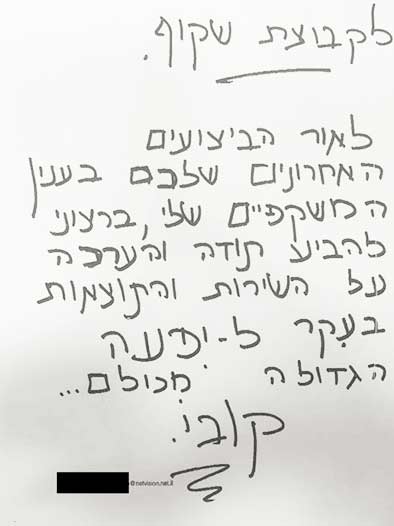 לקבוצת שקוף.
לאור הביצועים
האחרונים שלכם בענין
המשקפיים שלי, ברצוני
להביע תודה והערכה
על השירות והתוצאות
בעקר ל-יפעה
הגדולה מכולם...
קובי.
@netvision.net.il